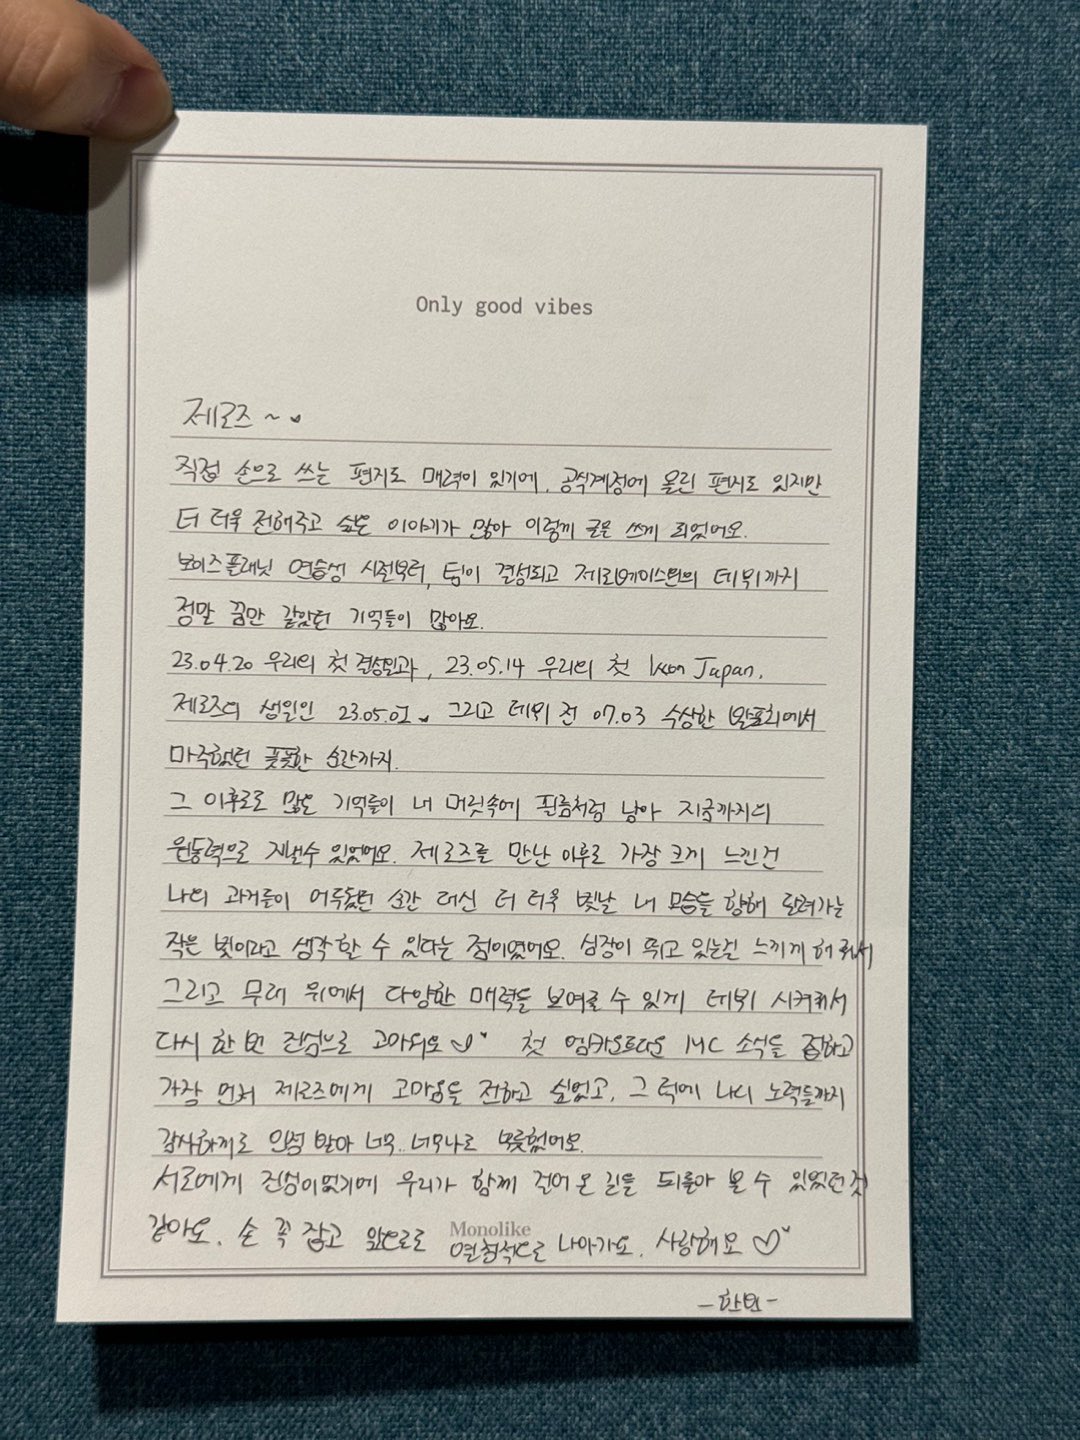 Only good vibes
제로즈 ~ ♥
직접 손으로 쓰는 편지도 매력이 있기에, 공식계정에 올린 편지도 있지만
더 더욱 전해주고 싶은 이야기가 많아 이렇게 글을 쓰게 되었어요.
보이즈플래닛 연습생 시절부터, 팀이 결성되고 제로베이스원의 데뷔까지
정말 꿈만 같았던 기억들이 많아요.
23.04.20 우리의 첫 결성일과, 23.05.14 우리의 첫 kcon Japan.
제로즈의 생일인 23.05.01 ♥ 그리고 데뷔 전 07.03 수상한 발표회에서
마주했던 풋풋한 순간까지.
그 이후로도 많은 기억들이 내 머릿속에 필름처럼 남아 지금까지의
원동력으로 지낼수 있었어요. 제로즈를 만난 이후로 가장 크게 느낀건
나의 과거들이 어두웠던 순간 대신 더 더욱 빛날 내 모습을 향해 달려가는
작은 빛이라고 생각 할 수 있다는 점이였어요. 심장이 뛰고 있는걸 느끼게 해 줘서
그리고 무대 위에서 다양한 매력을 보여줄 수 있게 데뷔 시켜줘서
다시 한 번 진심으로 고마워요 ♡ 첫 엠카운트다운 MC 소식을 접하고
가장 먼저 제로즈에게 고마움을 전하고 싶었고, 그 덕에 나의 노력들까지
감사하게도 인정 받아 너무.. 너무나도 뿌듯했어요.
서로에게 진심이였기에 우리가 함께 걸어 온 길을 되돌아 볼 수 있었던 것
같아요. 손 꼭 잡고 앞으로도 열정적으로 나아가요. 사랑해요 ♡
Monolike
- 한빈 -